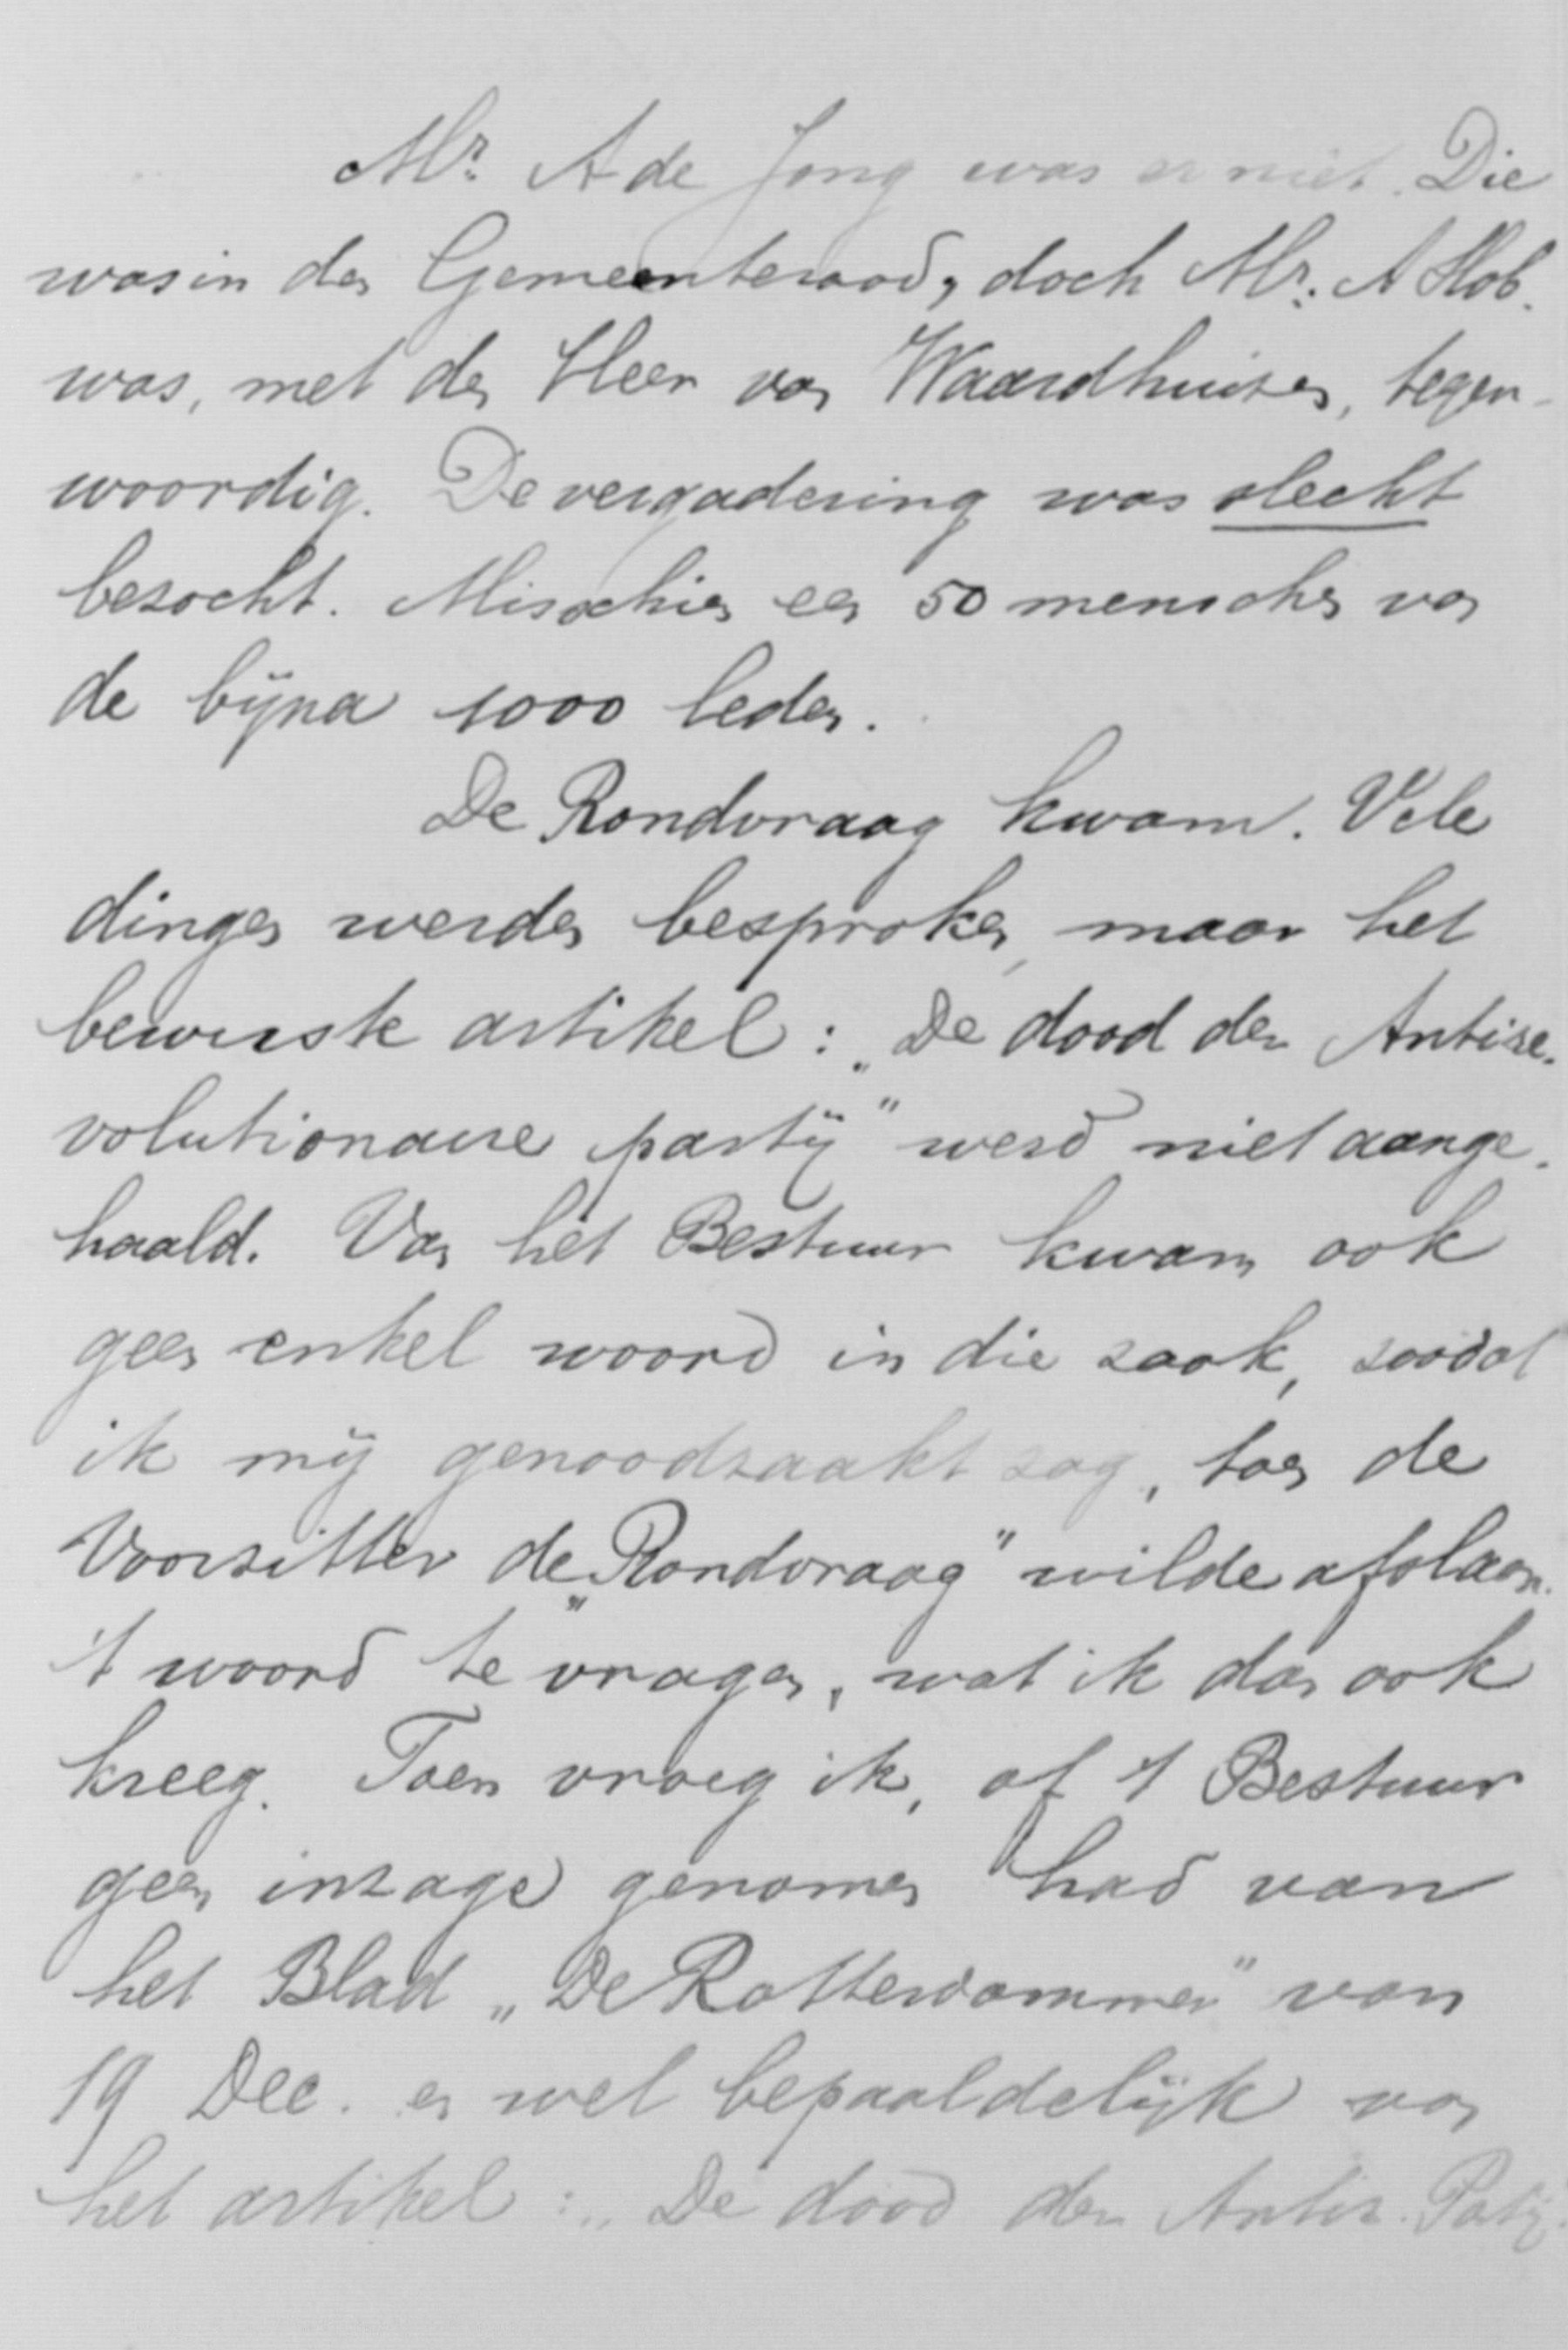 Mr. A de Jong was er niet. Die
was in den Gemeenteraad, doch Mr. A Stob.
was, met den Heer van Waardhuizen, tegen-
woordig. De vergadering was slecht
bezocht. Misschien een 50 menschen van
de bijna 1000 leden.
De Rondvraag kwam. Vele
dingen werden besproken, maar het
bewuste artikel: „De dood der Antire-
volutionaire partij" werd niet aange-
haald. Van het Bestuur kwam ook
geen enkel woord in die zaak, zoodat
ik mij genoodzaakt zag, toen de
Voorzitter de „Rondvraag" wilde afslaan.
't woord te vragen, wat ik dan ook
kreeg. Toen vroeg ik, of 't Bestuur
geen inzage genomen had van
het Blad „De Rotterdammer" van
19 Dec. en wel bepaaldelijk van
het artikel: „De dood der Antir. Partij.